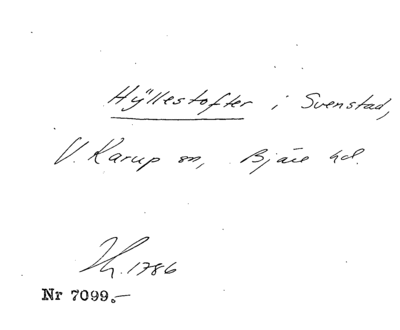 Hÿllestofter i Svenstad,
V. Karup sn, Bjäre hd.
Th. 1786
Nr 7099.-